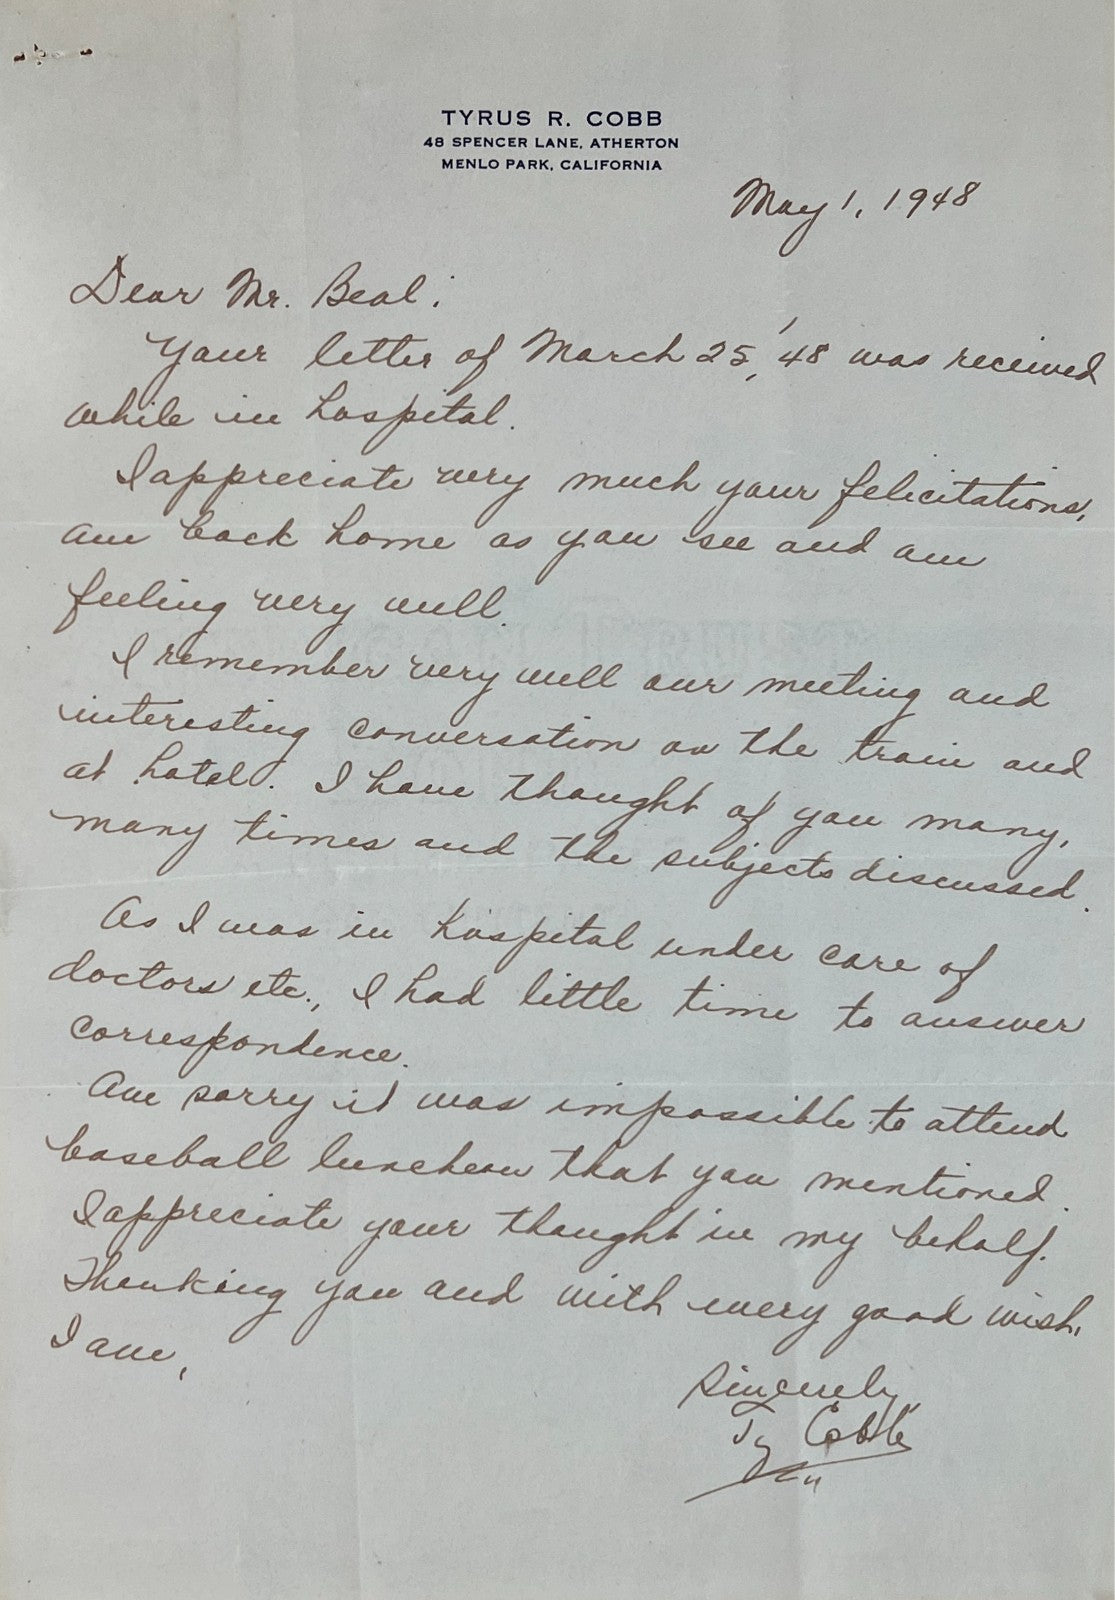 TYRUS R. COBB
48 SPENCER LANE, ATHERTON
MENLO PARK, CALIFORNIA
May 1, 1948
Dear Mr. Beal:
Your letter of March 25, '48 was received
while in hospital.
I appreciate very much your felicitations,
am back home as you see and am
feeling very well.
I remember very well our meeting and
interesting conversation on the train and
at hotel. I have thought of you many,
many times and the subjects discussed.
As I was in hospital under care of
doctors etc., I had little time to answer
correspondence.
Am sorry it was impossible to attend
baseball luncheon that you mentioned.
I appreciate your thought in my behalf.
Thanking you and with every good wish,
I am,
Sincerely,
Ty Cobb